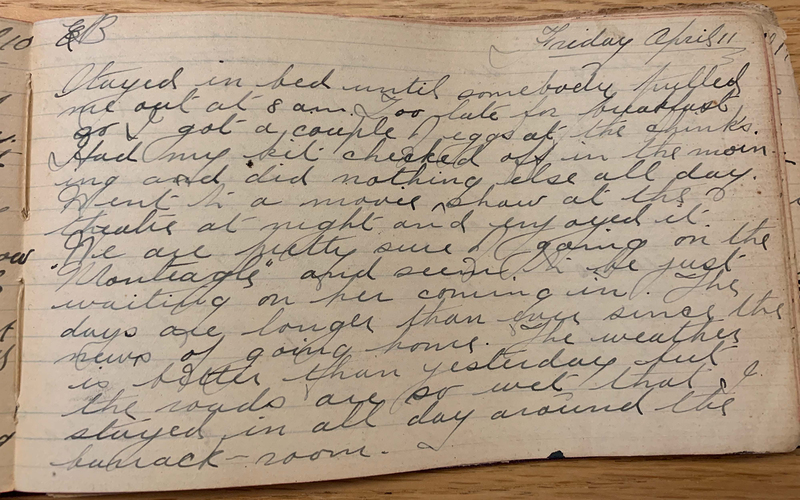 EB Friday April 11
Stayed in bed until somebody pulled
me out at 8 am. Too late for breakfast
so I got a couple of eggs at the chinks.
Had my kit checked off in the morn-
ing and did nothing else all day.
Went to a movie show at the
theatre at night and enjoyed it.
We are pretty sure of going on the
"Monteagle" and seem to be just
waiting on her coming in. The
days are longer than ever since the
news of going home. The weather
is better than yesterday but
the roads are so wet that I
stayed in all day around the
barrack-room.